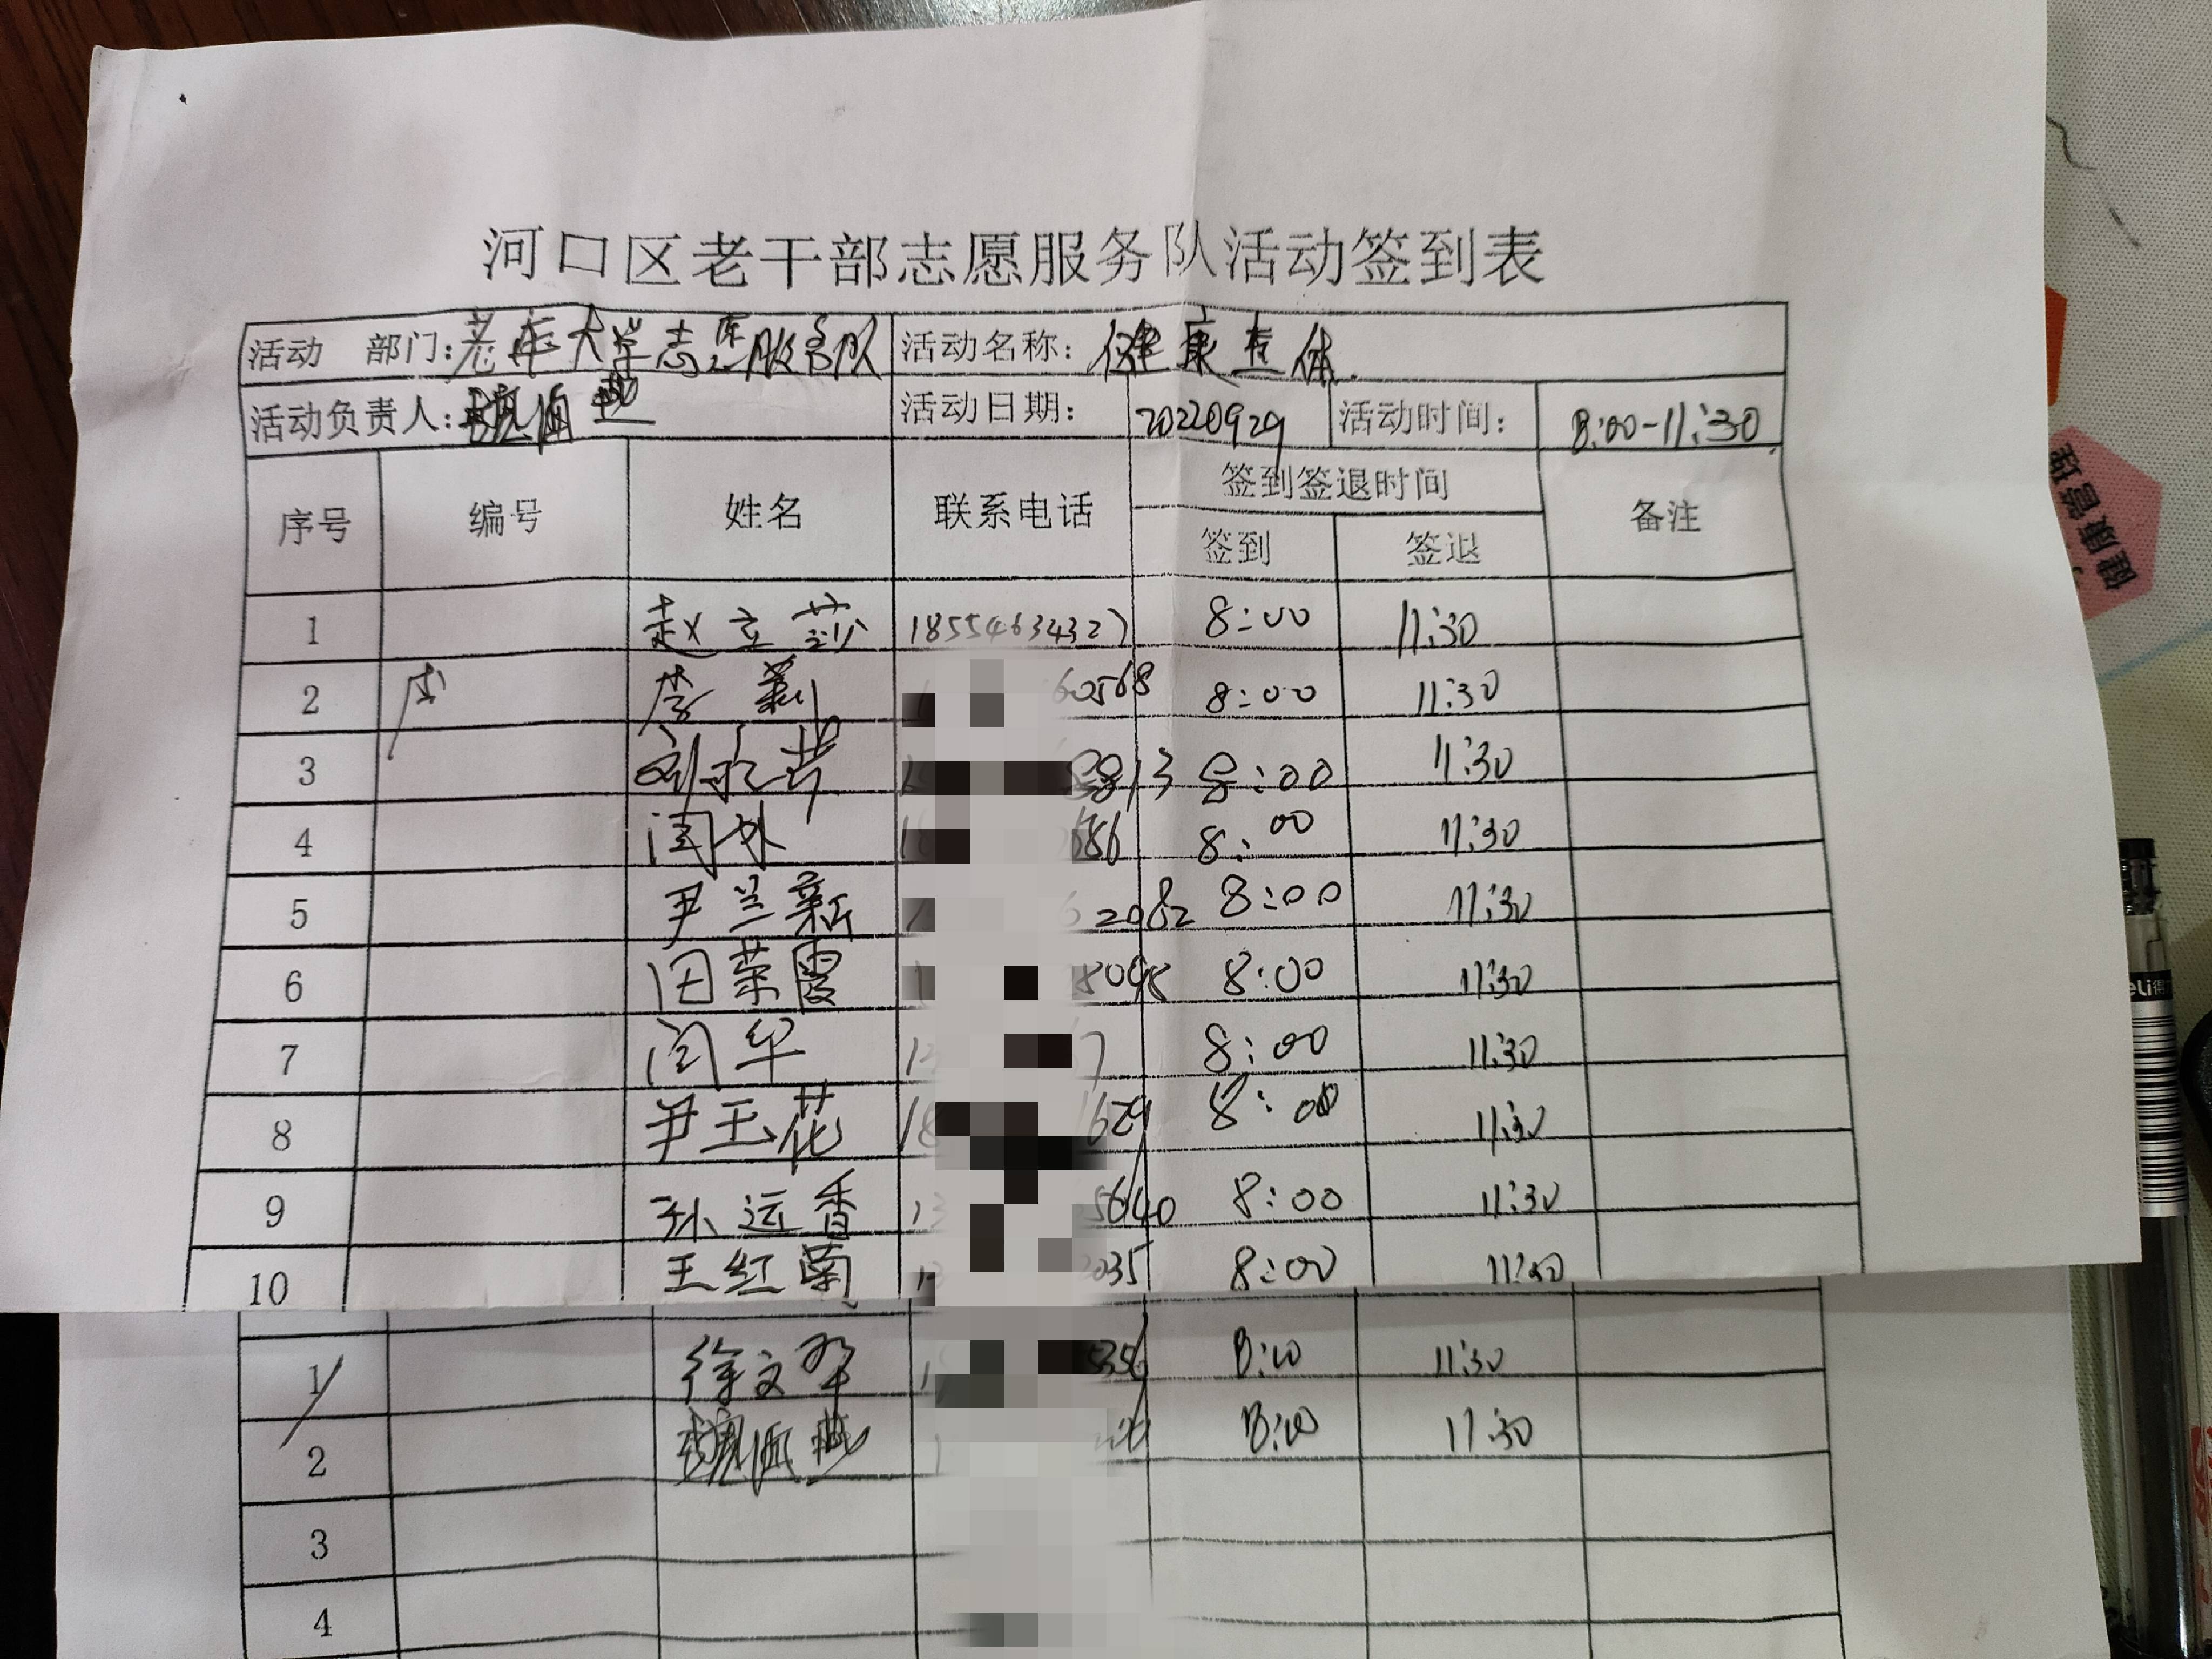 河口区老干部志愿服务队活动签到表
活动 部门：老年大学志愿服务队 活动名称：健康查体
活动负责人： 活动日期： 20220929 活动时间： 8:00-11:30
序号 编号 姓名 联系电话 签到签退时间 备注
签到 签退
1 赵立莎 18554634327 8:00 11:30
2 李莉 60568 8:00 11:30
3 刘永芳 3813 8:00 11:30
4 闫林 686 8:00 11:30
5 尹兰新 2082 8:00 11:30
6 田荣霞 8048 8:00 11:30
7 闫华 7 8:00 11:30
8 尹玉花 1629 8:00 11:30
9 孙远香 5640 8:00 11:30
10 王红菊 2035 8:00 11:30
1 徐文华 5356 8:00 11:30
2 8:00 11:30
3
4
健康
deli 得